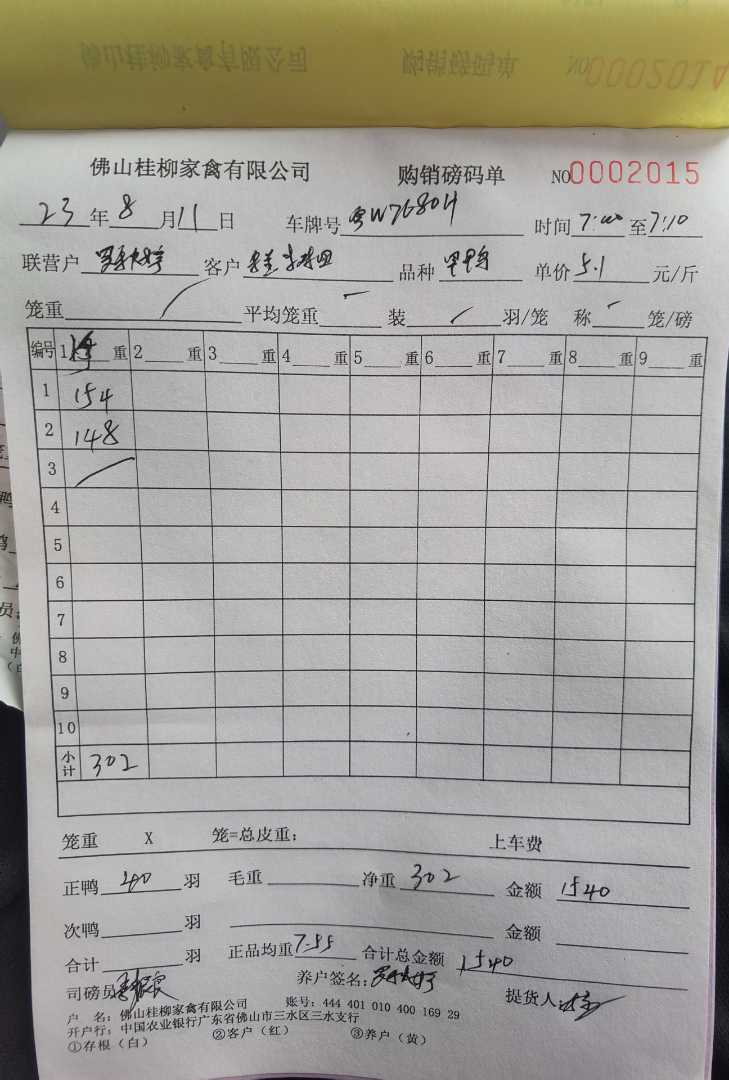 佛山桂柳家禽有限公司 购销磅码单 NO 0002015
23年8月11日 车牌号 粤W7680H 时间7:00至7:10
联营户 客户 品种 单价5.1元/斤
笼重 平均笼重 装 羽/笼 称 笼/磅
编号 1 重 2 重 3 重 4 重 5 重 6 重 7 重 8 重 9 重
1 154
2 148
3
4
5
6
7
8
9
10
小计 302
笼重 X 笼=总皮重: 上车费
正鸭 羽 毛重 净重302 金额1540
次鸭 羽 金额
合计 羽 正品均重7.55 合计总金额1540
司磅员 养户签名: 提货人
户 名: 佛山桂柳家禽有限公司 账号: 444 401 010 400 169 29
开户行: 中国农业银行广东省佛山市三水区三水支行
①存根(白) ②客户(红) ③养户(黄)